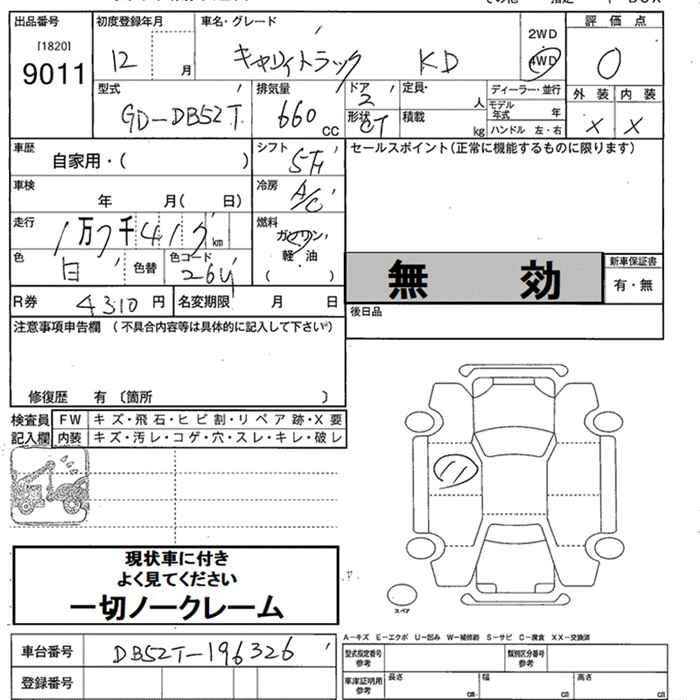 出品番号
[1820]
9011
初度登録年月
12 月
車名・グレード
キャリィトラック KD
2WD
4WD
評価点
0
外装 内装
× ×
型式
GD-DB52T
排気量
660 CC
ドア
2
形状
CT
定員・ 人
積載 kg
ディーラー・並行
モデル年式 年
ハンドル 左・右
車歴
自家用・( )
シフト
5F
セールスポイント(正常に機能するものに限ります)
車検
年 月( 日)
冷房
A/C
走行
1万7千41 km
燃料
ガソリン・
軽・油
( )
色
白
色替
色コード
26U
無 効
新車保証書
有・無
R券
4310円
名変期限 月 日
後日品
注意事項申告欄 (不具合内容等は具体的に記入して下さい)
修復歴 有 〔箇所 〕
検査員
記入欄
FW キズ・飛石・ヒビ割・リペア跡・X要
内装 キズ・汚レ・コゲ・穴・スレ・キレ・破レ
現状車に付き
よく見てください
一切ノークレーム
スペア
A-キズ E-エクボ U-凹み W-補修跡 S-サビ C-腐食 XX-交換済
車台番号
DB52T-196326
登録番号
型式指定番号
参考
類別区分番号
参考
車庫証明用
参考
長さ cm
幅 cm
高さ cm